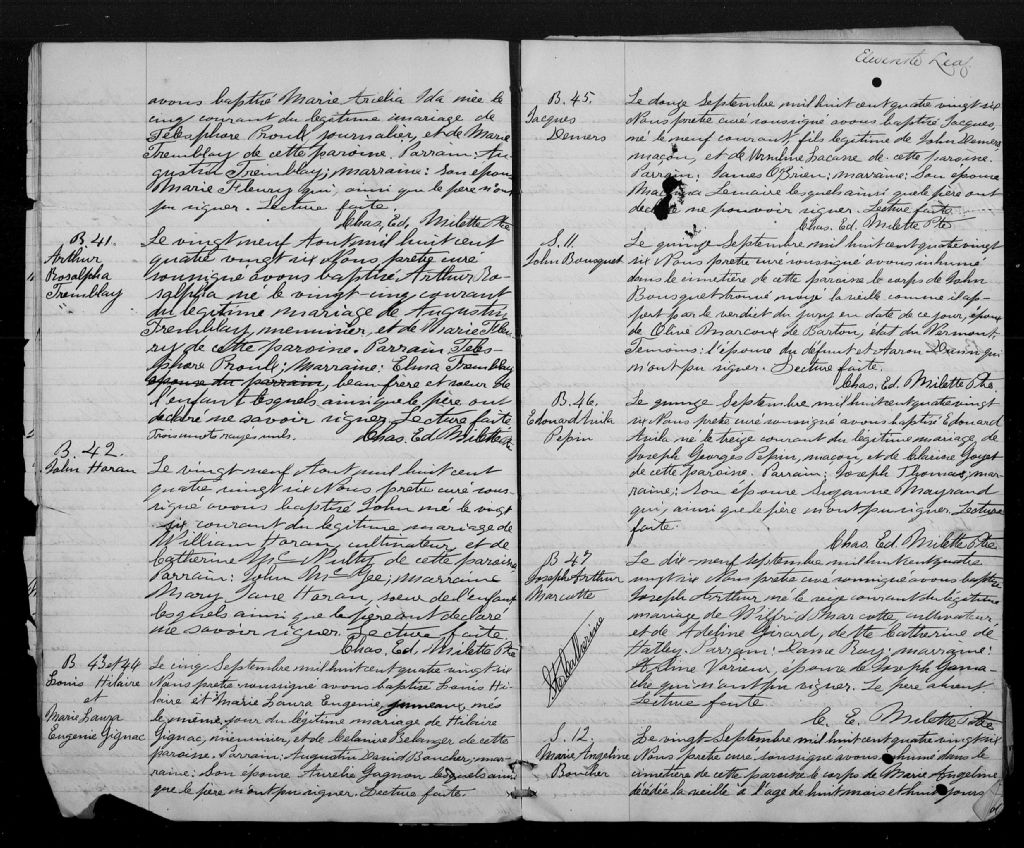 avons baptisé Marie Arcelia Ida née le
cinq courant du légitime mariage de
Télesphore Proulx, journalier, et de Marie
Tremblay de cette paroisse. Parrain: Au-
gustin Tremblay; marraine: son épouse
Marie Fleury qui, ainsi que le père n'ont
pu signer. Lecture faite.
Chas. Ed. Milette Ptre
B. 41.
Arthur
Rosalpha
Tremblay
Le vingt neuf Aout mil huit cent
quatre vingt six Nous prêtre curé
soussigné avons baptisé Arthur Ro-
salpha né le vingt cinq courant
du légitime mariage de Augustin
Tremblay, menuisier, et de Marie Fleu-
ry de cette paroisse. Parrain Téles-
phore Proulx; Marraine: Elma Tremblay
épouse du parrain, beau frère et soeur de
l'enfant lesquels ainsi que le père ont
déclaré ne savoir signer. Lecture faite
Trois mots rayés nuls.
Chas. Ed. Milette Ptre
B. 42.
John Horan
Le vingt neuf Aout mil huit cent
quatre vingt six Nous prêtre curé sous-
signé avons baptisé John né le vingt
six courant du légitime mariage de
William Horan cultivateur et de
Catherine McNulty de cette paroisse
Parrain: John McGee; marraine
Mary Jane Horan, soeur de l'enfant
lesquels ainsi que le père ont déclaré
ne savoir signer. Lecture faite.
Chas. Ed. Milette Ptre
B 43 et 44
Louis Hilaire
et
Marie Laura
Eugenie Gignac
Le cinq Septembre mil huit cent quatre vingt six
Nous prêtre soussigné avons baptisé Louis Hi-
laire et Marie Laura Eugenie, jumeaux, nés
le même jour du légitime mariage de Hilaire
Gignac, menuisier, et de Célanire Belanger de cette
paroisse. Parrain: Augustin David Boucher; mar-
raine: Son épouse Aurelie Gagnon lesquels ainsi
que le père n'ont pu signer. Lecture faite.
Leaf
B. 45.
Jacques
Demers
Le douze Septembre mil huit cent quatre vingt six
Nous prêtre curé soussigné avons baptisé Jacques,
né le neuf courant, fils légitime de John Demers,
maçon, et de Ursuline Lacasse de cette paroisse.
Parrain: James O'Brien; marraine: Son épouse
Lemaire lesquels ainsi que le père ont
déclaré ne pouvoir signer. Lecture faite
Chas. Ed. Milette Ptre
S. 11.
John Bousquet
Le quinze Septembre mil huit cent quatre vingt
six Nous prêtre curé soussigné avons inhumé
dans le cimetière de cette paroisse le corps de John
Bousquet trouvé noyé la veille comme il ap-
pert par le verdict du jury en date de ce jour, époux
de Olive Marcoux de Barton, état du Vermont.
Temoins: l'épouse du défunt et Aaron qui
n'ont pu signer. Lecture faite.
Chas. Ed. Milette Ptre
B. 46.
Edouard Avila
Pepin
Le quinze Septembre mil huit cent quatre vingt
six Nous prêtre curé soussigné avons baptisé Edouard
Avila né le treize courant du légitime mariage de
Joseph Georges Pepin, maçon, et de Clarisse Goyet
de cette paroisse. Parrain: Joseph Thomas; mar-
raine: Son épouse Suzanne Mayrand
qui, ainsi que le père n'ont pu signer. Lecture
faite.
Chas. Ed. Milette Ptre
B 47
Joseph Arthur
Marcotte
Ste Catherine
Le dix neuf septembre mil huit cent quatre
vingt six Nous prêtre curé soussigné avons baptisé
Joseph Arthur né le seize courant du légitime
mariage de Wilfrid Marcotte, cultivateur,
et de Adeline Girard, de Ste Catherine de
Hatley. Parrain: Roy; marraine:
Verieur, épouse de Joseph Gama-
che qui n'ont pu signer. Le père absent.
Lecture faite
C. E. Milette Ptre
S. 12.
Marie Angeline
Boucher
Le vingt Septembre mil huit cent quatre vingt six
Nous prêtre curé soussigné avons inhumé dans le
cimetière de cette paroisse le corps de Marie Angeline,
décédée la veille à l'age de huit mois et huit jours